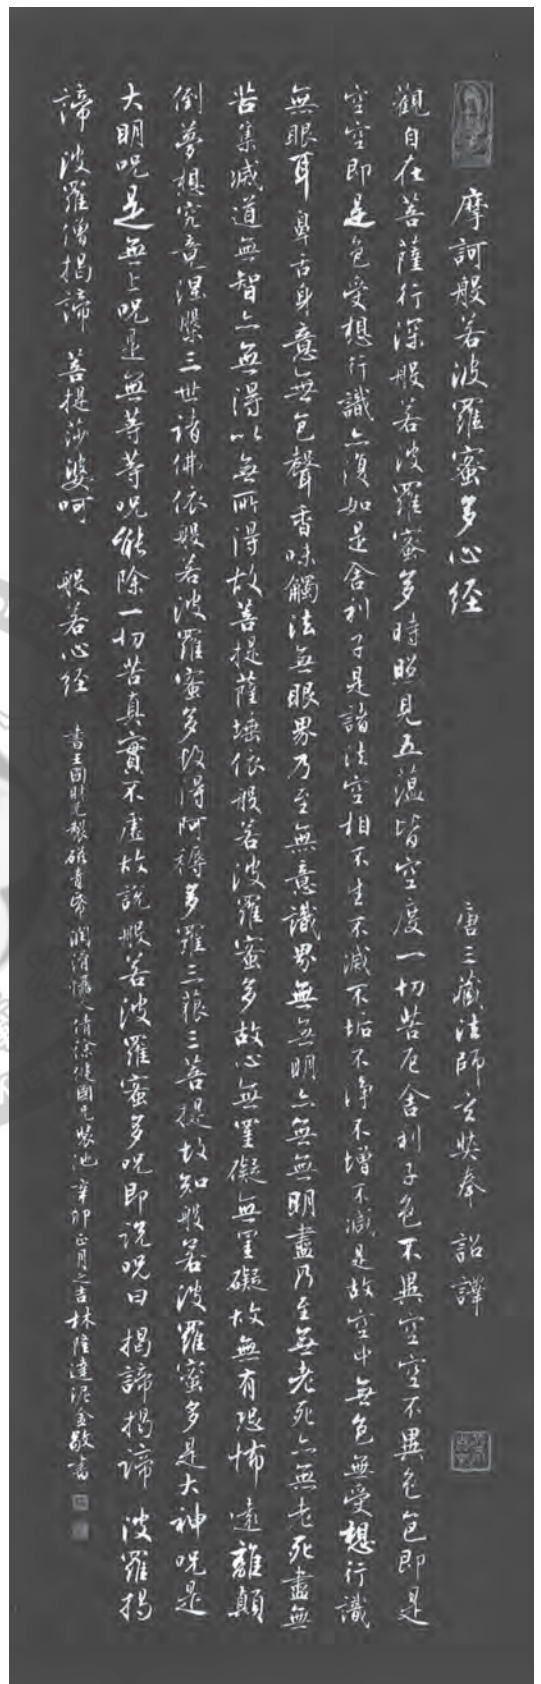 摩訶般若波羅蜜多心経 唐三藏法師玄奘奉 詔譯
觀自在菩薩行深般若波羅蜜多時照見五蕴皆空度一切苦厄舍利子色不異空空不異色色即是
空空即是色受想行識亦復如是舍利子是諸法空相不生不滅不垢不淨不增不減是故空中無色無受想行識
無眼耳鼻舌身意無色聲香味觸法無眼界乃至無意識界無無明亦無無明盡乃至無老死亦無老死盡無
苦集滅道無智亦無得以無所得故菩提薩埵依般若波羅蜜多故心無罣礙無罣礙故無有恐怖遠離顛
倒夢想究竟涅槃三世諸佛依般若波羅蜜多故得阿耨多羅三藐三菩提故知般若波羅蜜多是大神呪是
大明呪是無上呪是無等等呪能除一切苦真實不虛故說般若波羅蜜多呪即説呪曰 揭諦揭諦 波羅揭
諦 波羅僧揭諦 菩提莎婆呵 般若心経 書王國財兄製磁青帋潤滑愜人倩徐健國兄裝池 辛卯正月之吉林隆達泥金敬書